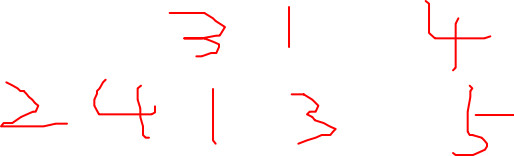 3 1 4
2 4 1 3 5